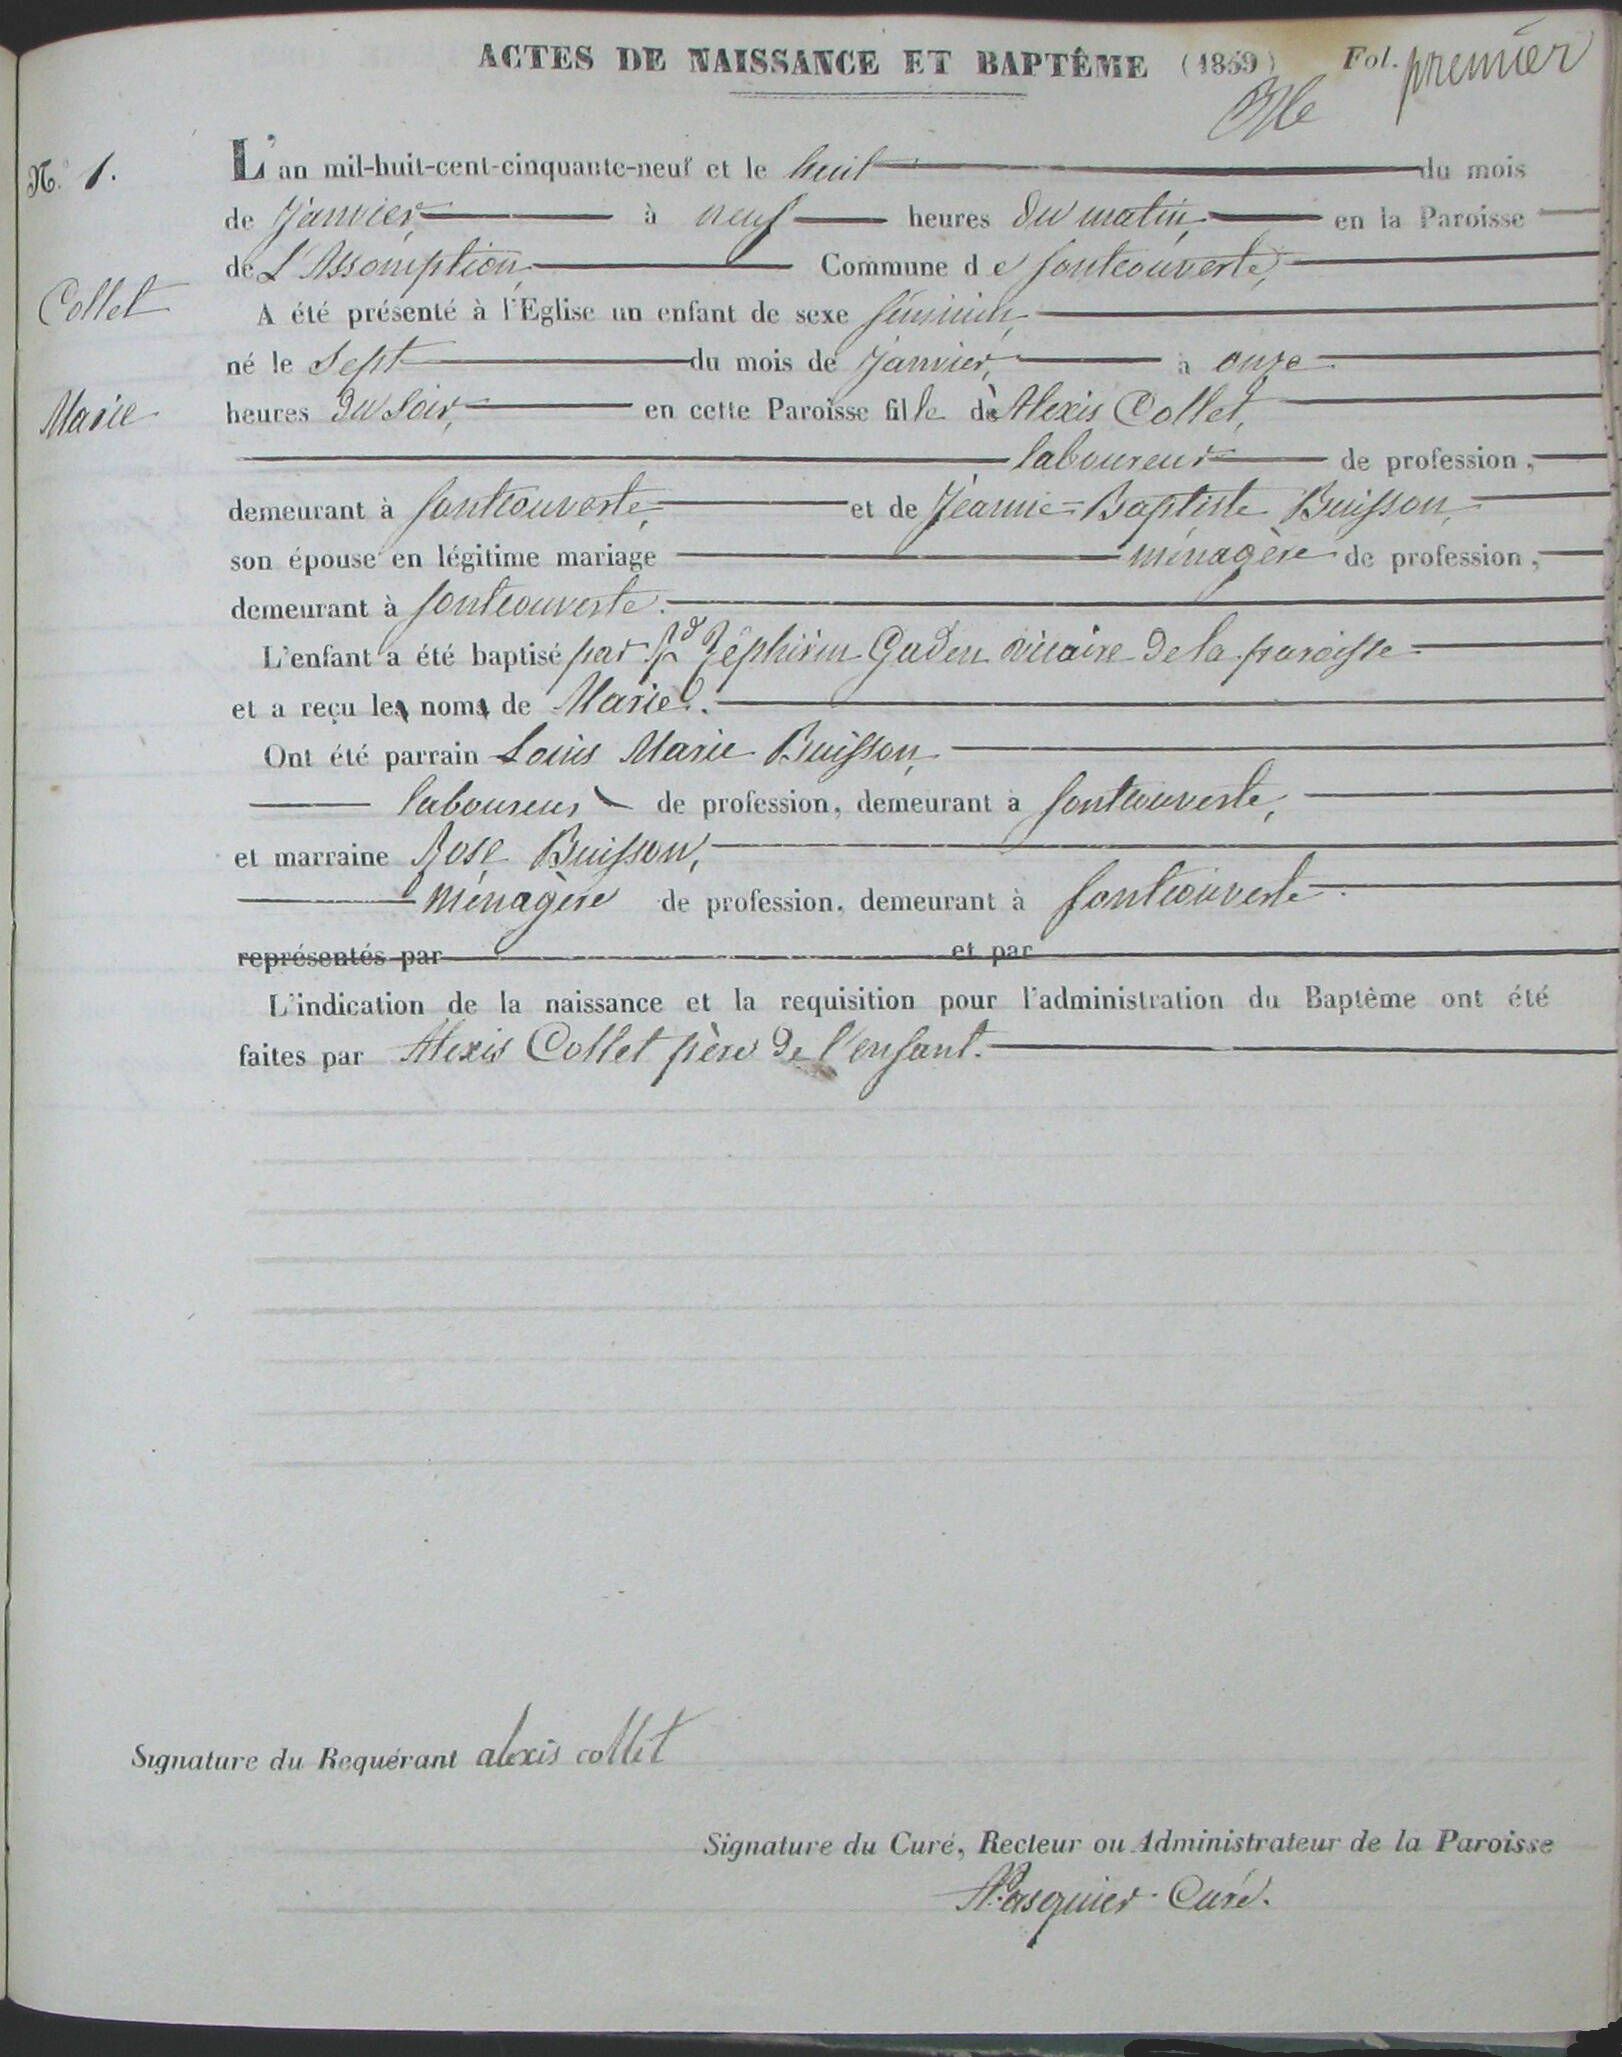 ACTES DE NAISSANCE ET BAPTÊME (1859) Fol. premier
N.° 1.
L'an mil-huit-cent-cinquante-neuf et le huit du mois
de Janvier, à neuf heures du matin, en la Paroisse
de L'Assomption, Commune de fontcouverte,
Collet
A été présenté à l'Eglise un enfant de sexe féminin,
né le Sept du mois de Janvier, à onze
Marie
heures du soir, en cette Paroisse fille de Alexis Collet,
laboureur de profession,
demeurant à fontcouverte, et de Jeanne=Baptiste Buisson,
son épouse en légitime mariage ménagère de profession,
demeurant à fontcouverte.
L'enfant a été baptisé par Rd Zéphirin Gaden vicaire de la paroisse
et a reçu les noms de Marie.
Ont été parrain Louis Marie Buisson,
laboureur de profession, demeurant à fontcouverte,
et marraine Rose Buisson,
ménagère de profession, demeurant à fontcouverte.
représentés par et par
L'indication de la naissance et la requisition pour l'administration du Baptême ont été
faites par Alexis Collet père de l'enfant.
Signature du Requérant alexis collet
Signature du Curé, Recteur ou Administrateur de la Paroisse
Pasquier Curé.